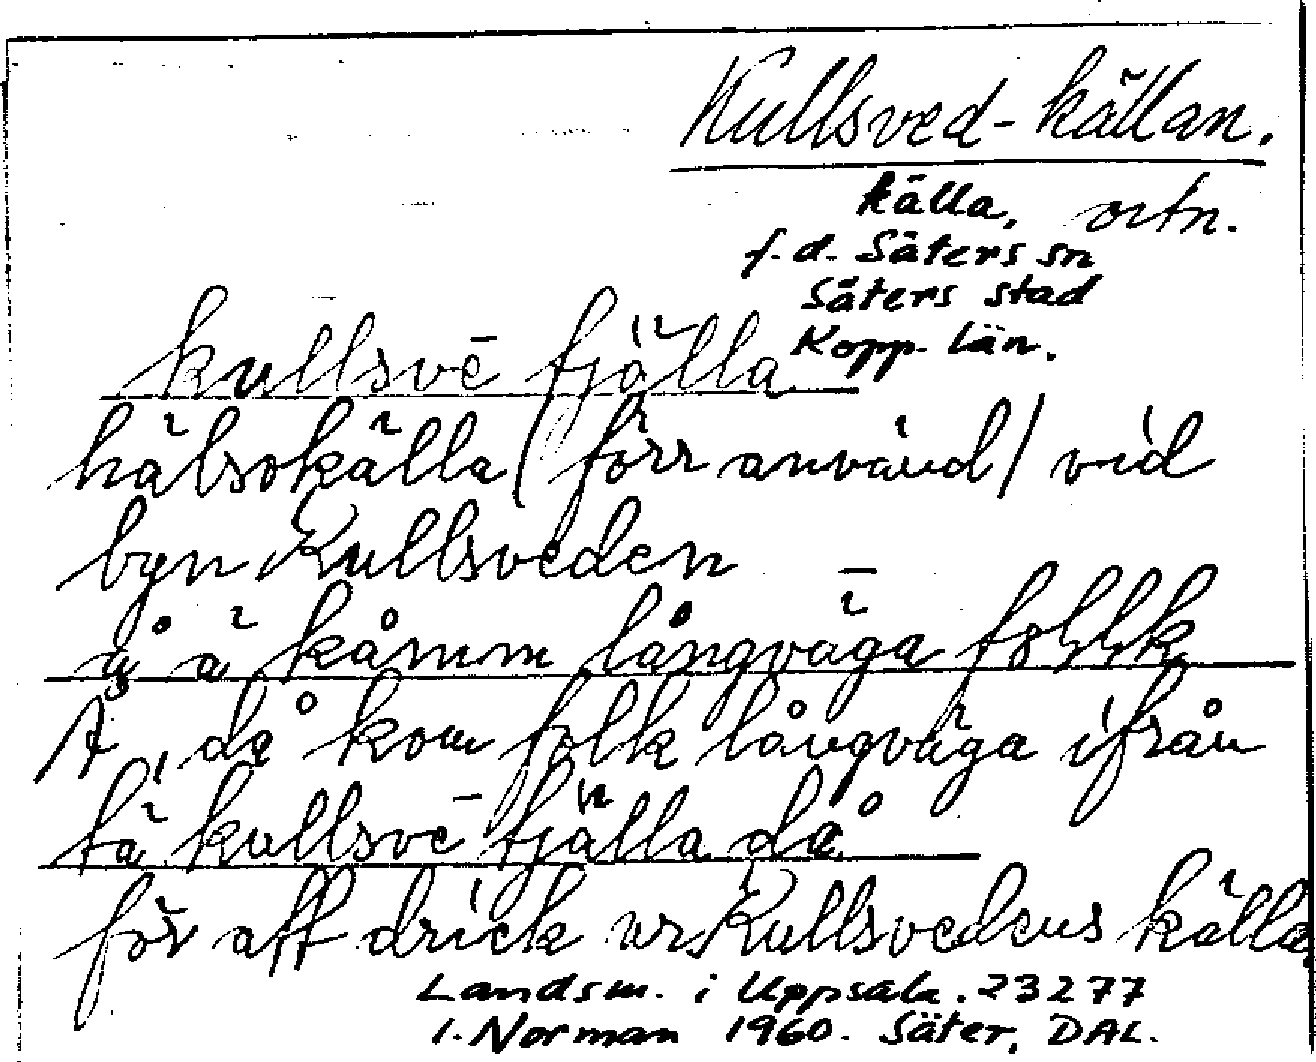 Kullsved-källan.
källa, ortn.
f.d. Säters sn
Säters stad
Kopp. län.
kullsvē tjälla
hälsokälla (förr använd) vid
byn Kullsveden
å kåmm långvāga follk
Ja, då kom folk långväga ifrån
tä kullsvē tjälla då
för att drick ur Kullsvedens källa
Landsm. i Uppsala. 23277
I. Norman 1960. Säter, DAL.